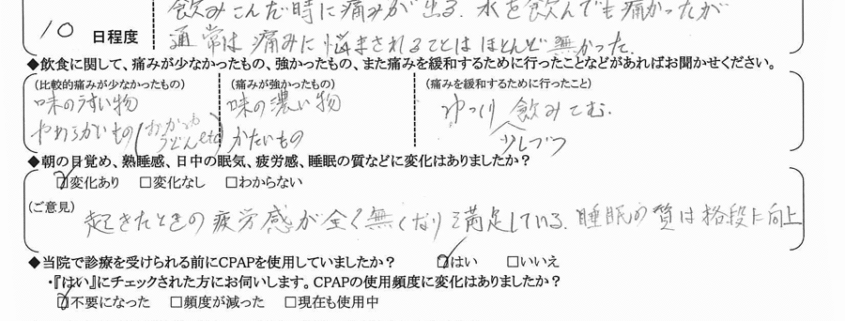 飲みこんだ時に痛みが出る。水を飲んでも痛かったが
10 日程度 通常は痛みに悩まされることはほとんど無かった。
◆飲食に関して、痛みが少なかったもの、強かったもの、また痛みを緩和するために行ったことなどがあればお聞かせください。
(比較的痛みが少なかったもの) (痛みが強かったもの) (痛みを緩和するために行ったこと)
味のうすい物 味の濃い物 ゆっくり 少しづつ 飲みこむ.
やわらかいもの(おかゆ うどんetc) かたいもの
◆朝の目覚め、熟睡感、日中の眠気、疲労感、睡眠の質などに変化はありましたか?
☑変化あり □変化なし □わからない
(ご意見) 起きたときの疲労感が全く無くなり満足している。睡眠の質は格段に向上
◆当院で診療を受けられる前にCPAPを使用していましたか? ☑はい □いいえ
・『はい』にチェックされた方にお伺いします。CPAPの使用頻度に変化はありましたか?
☑不要になった □頻度が減った □現在も使用中